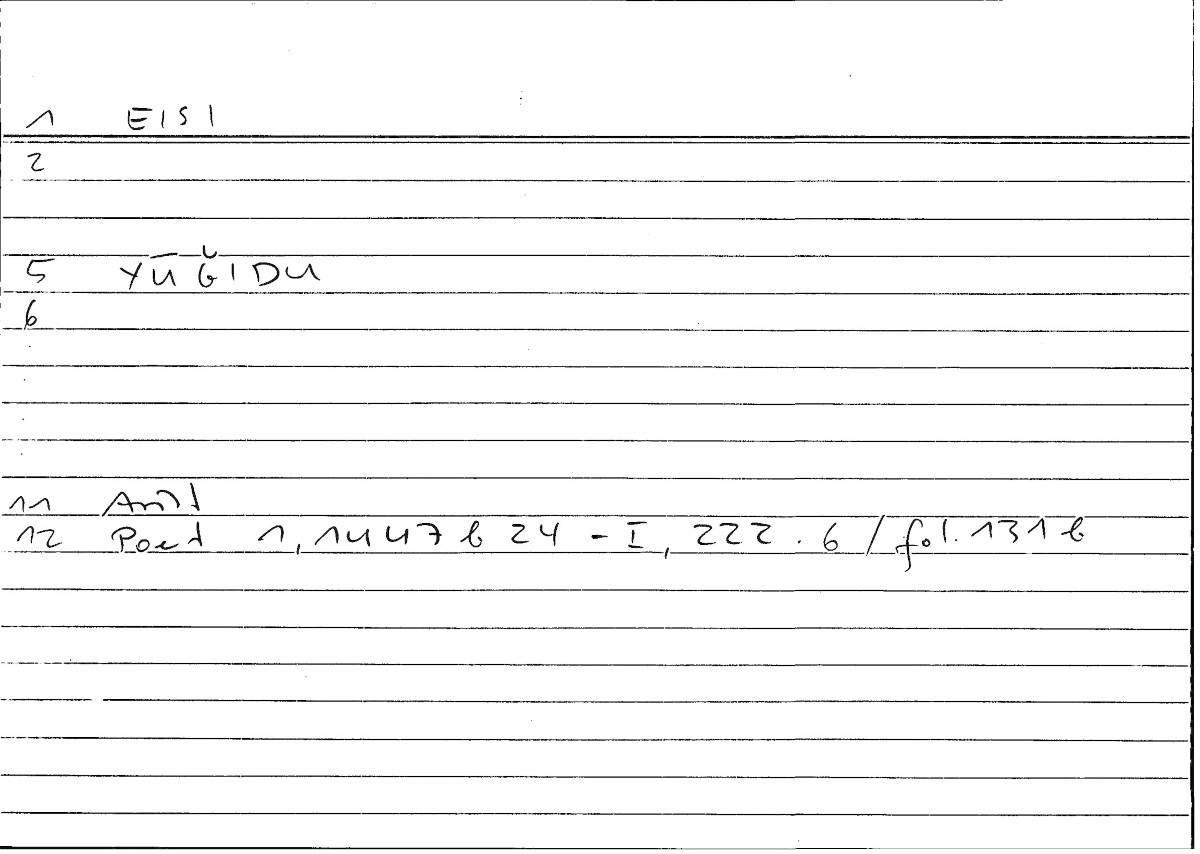 1 EISI
2
5 YŪĞIDU
6
11 Arist
12 Poet 1,1447b24 - I, 222.6 / fol. 131b